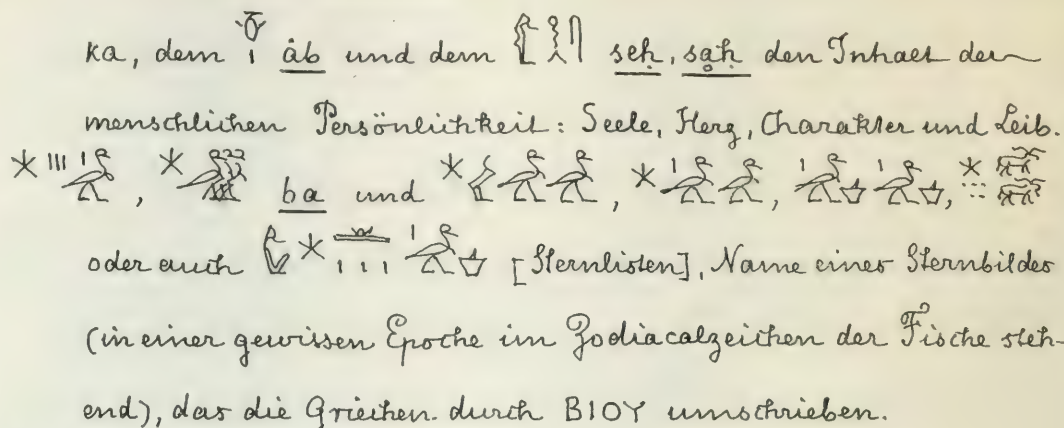 ka, dem 𓄣𓏤 ȧb und dem seḥ, saḥ den Inhalt der
menschlichen Persönlichkeit: Seele, Herz, Charakter und Leib.
, ba und , , ,
oder auch [Sternlisten], Name eines Sternbildes
(in einer gewissen Epoche im Zodiacalzeichen der Fische steh-
end), das die Griechen durch BIOY umschrieben.